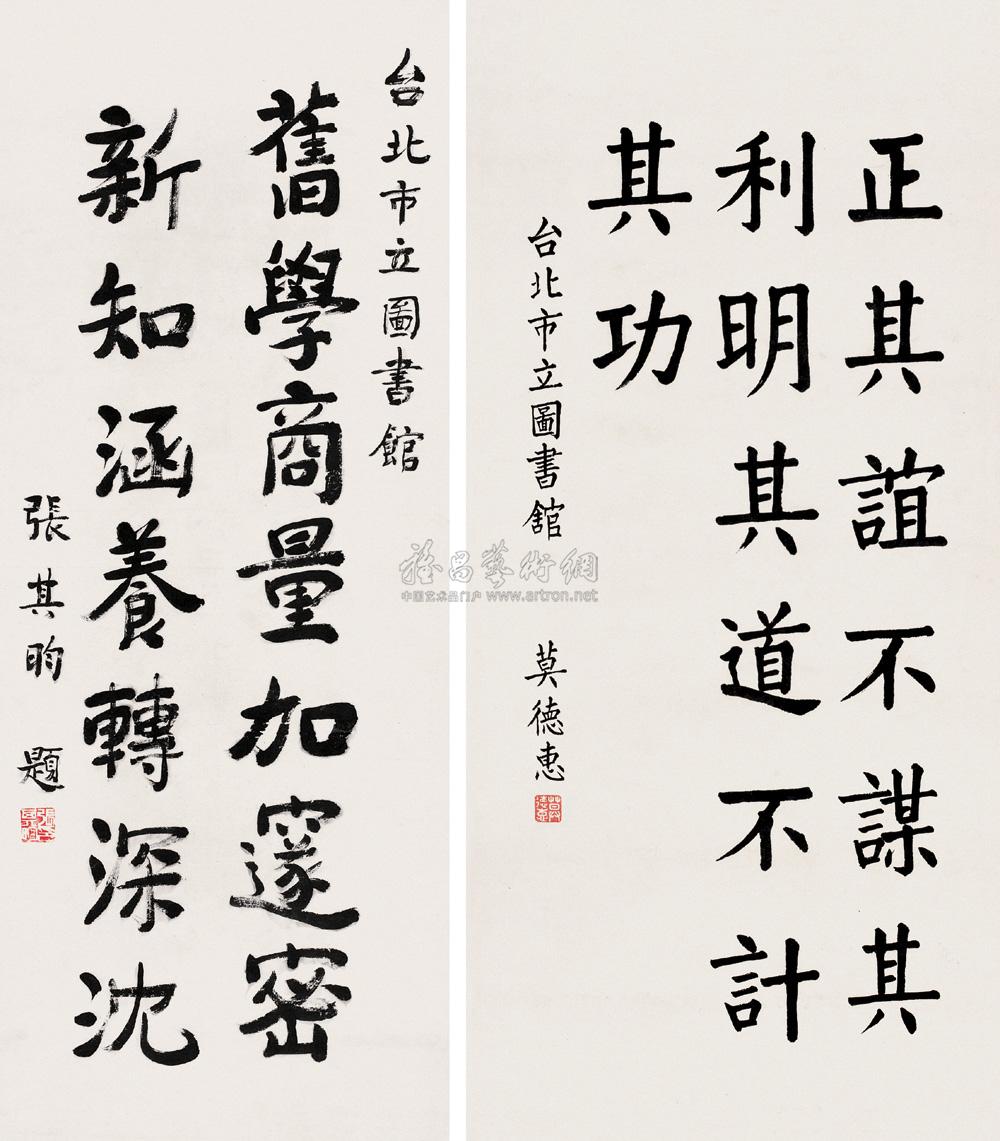 正其誼不謀其
利明其道不計
其功
台北市立圖書舘 莫德惠
台北市立圖書館
舊學商量加邃密
新知涵養轉深沈
張其昀 題
雅昌藝術網
中国艺术品门户 www.artron.net